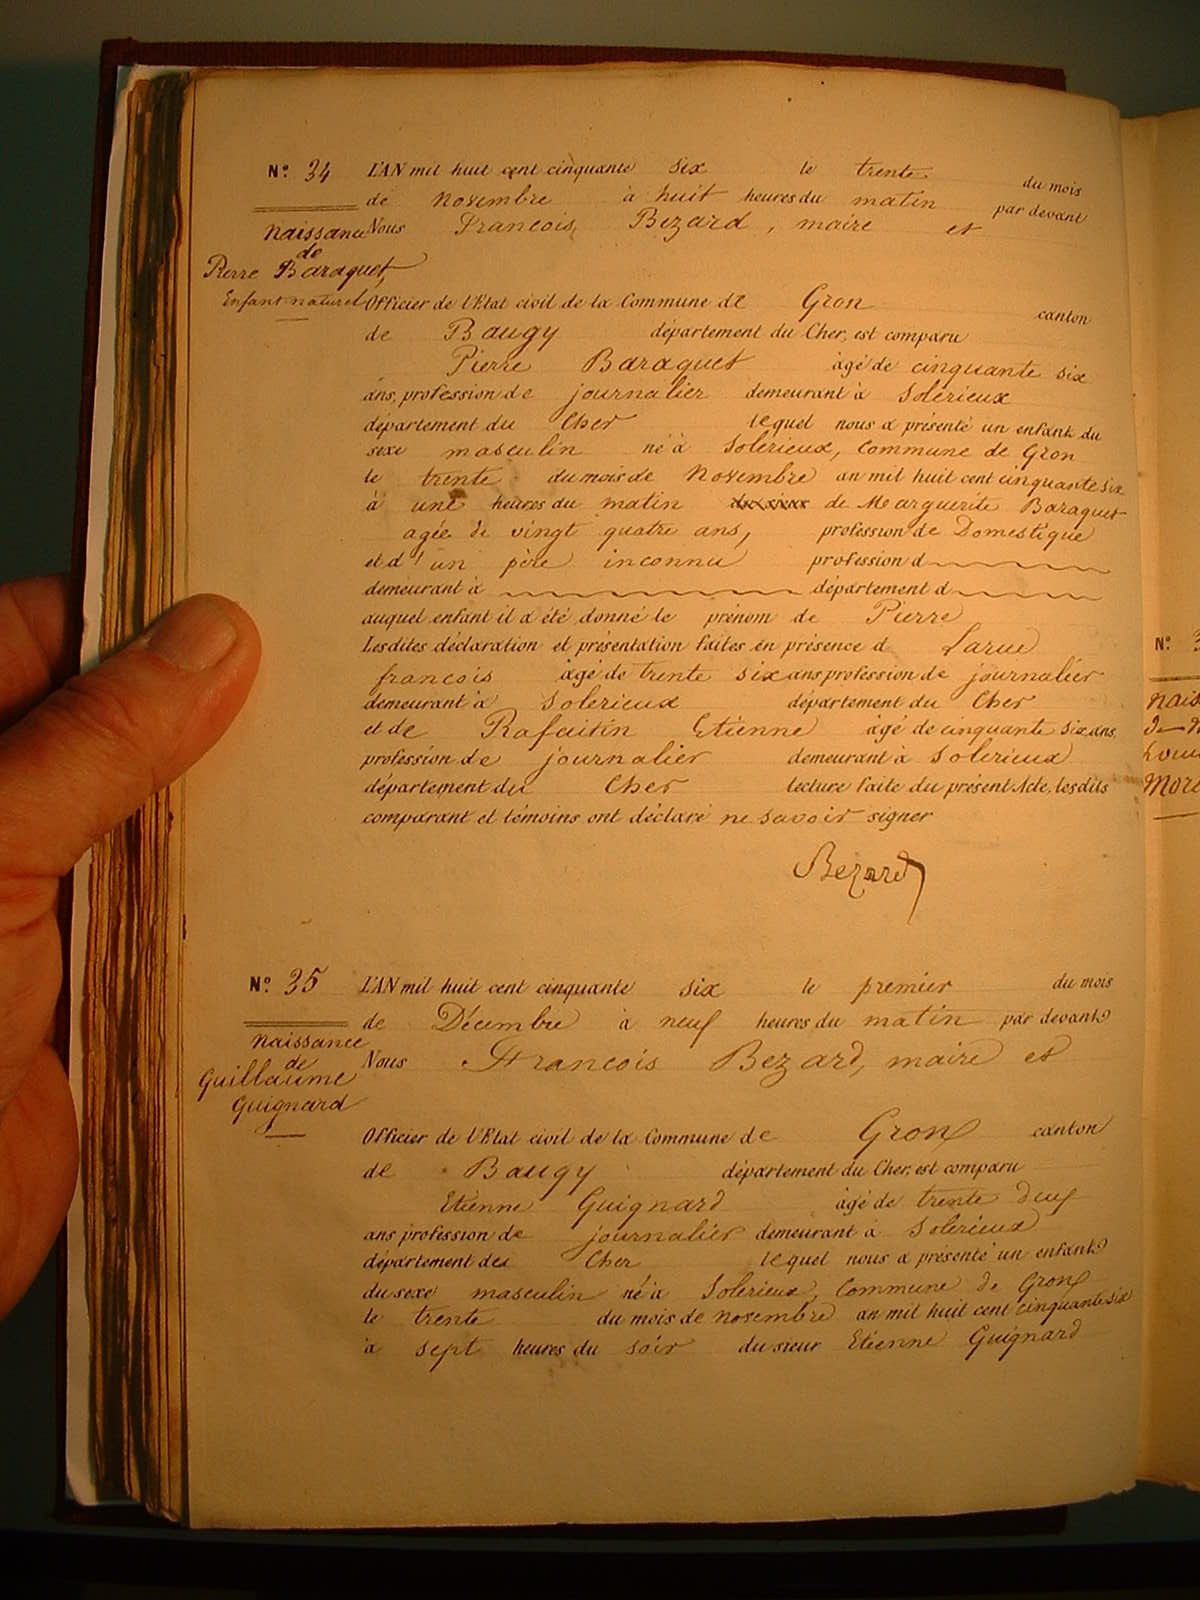 N.° 34 L'AN mil huit cent cinquante six le trente du mois
de novembre à huit heures du matin par devant
naissance Nous François Bezard, maire et
de
Pierre Baraquet,
Enfant naturel Officier de l'Etat civil de la Commune de Gron canton
de Baugy département du Cher, est comparu
Pierre Baraquet âgé de cinquante six
ans, profession de journalier demeurant à Solérieux
département du Cher lequel nous a présenté un enfant du
sexe masculin né à Solérieux, commune de Gron
le trente du mois de Novembre an mil huit cent cinquante six
à une heures du matin du sieur de Marguerite Baraquet
agée de vingt quatre ans, profession de Domestique
et d'un père inconnu profession d
demeurant à département d
auquel enfant il a été donné le prénom de Pierre
Lesdites déclaration et présentation faites en présence d Larue
françois âgé de trente six ans profession de journalier
demeurant à Solerieux département du Cher
et de Rafaitin Etienne âgé de cinquante six ans,
profession de journalier demeurant à Solerieux
département du Cher lecture faite du présent Acte, lesdits
comparant et témoins ont déclaré ne savoir signer
Bezard
N.° 35 L'AN mil huit cent cinquante six le premier du mois
de Décembre à neuf heures du matin par devant
naissance
de
Guillaume
Guignard
Nous François Bezard, maire et
Officier de l'Etat civil de la Commune de Gron canton
de Baugy département du Cher, est comparu
Etienne Guignard âgé de trente deux
ans profession de journalier demeurant à Solérieux
département du Cher lequel nous a présenté un enfant
du sexe masculin né à Solerieux, Commune de Gron
le trente du mois de novembre an mil huit cent cinquante six
à sept heures du soir du sieur Etienne Guignard
N.°